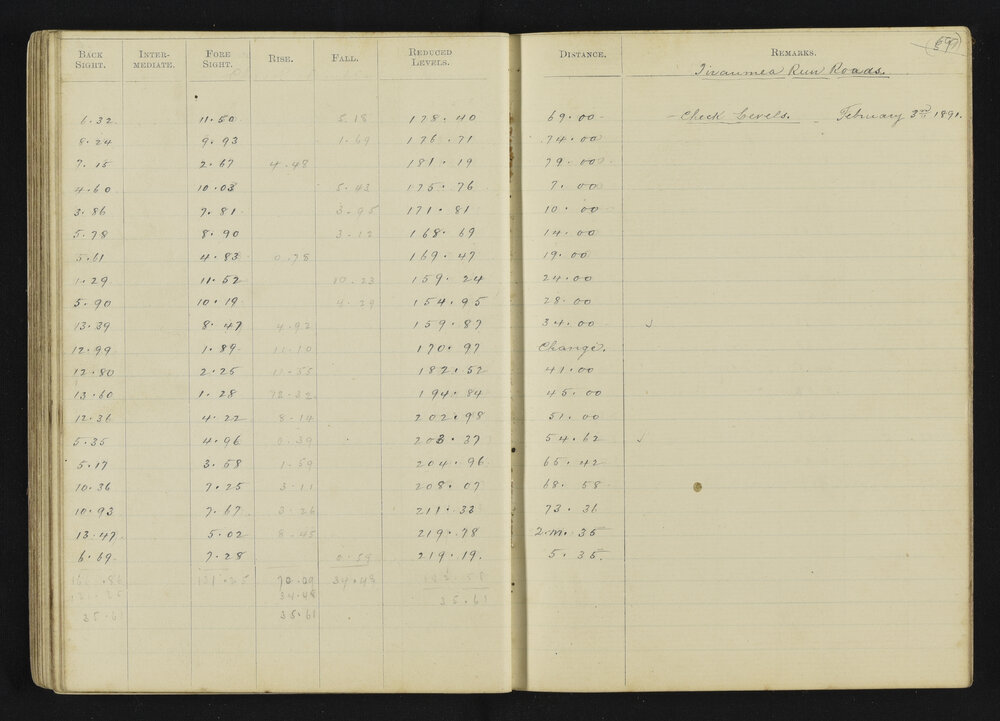 BACK SIGHT. INTER-MEDIATE. FORE SIGHT. RISE. FALL. REDUCED LEVELS. DISTANCE. REMARKS. 69
Tiraumea Run Roads.
6.32 11.50 5.18 178.40 69.00 - Check Levels. - February 3rd 1891.
8.24 9.93 1.69 176.71 74.00
7.15 2.67 4.48 181.19 79.00
4.60 10.03 5.43 175.76 7.00
3.86 7.81 3.95 171.81 10.00
5.78 8.90 3.12 168.69 14.00
5.61 4.83 0.78 169.47 19.00
1.29 11.52 10.23 159.24 24.00
5.90 10.19 4.29 154.95 28.00
13.39 8.47 4.92 159.87 34.00 ✓
12.99 1.89 11.10 170.97 Change.
12.80 2.25 11.55 182.52 41.00
13.60 1.28 12.32 194.84 45.00
12.36 4.22 8.14 202.98 51.00
5.35 4.96 0.39 203.37 54.62 ✓
5.17 3.58 1.59 204.96 65.42
10.36 7.25 3.11 208.07 68.58
10.93 7.67 3.26 211.33 73.36
13.47 5.02 8.45 219.78 2.m.35
6.69 7.28 0.59 219.19. 5.35.
166.86 131.25 70.09 34.48 183.58
131.25 34.48 35.61
35.61 35.61